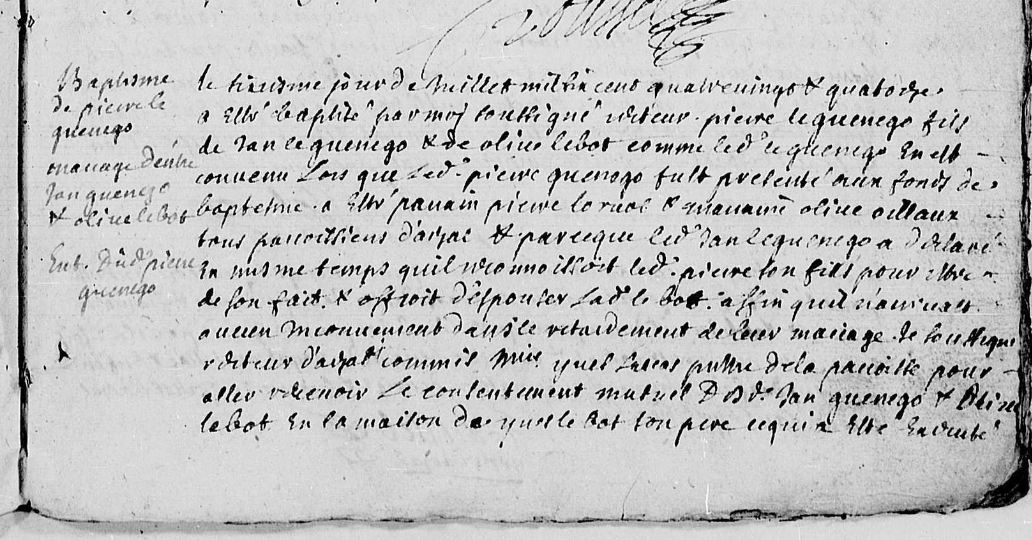 Baptesme
de pierre le
guenego
mariage d'entre
Jan guenego
& olive le bot
Ent. Dud. pierre
guenego
le sixiesme jour de Juillet mil six cent quatrevingt & quatorze
a esté baptisé par moy soussigné recteur pierre le guenego fils
de Jan le guenego & de olive le bot comme led. le guenego en est
convenu Lors que Led. pierre guenego fust presenté aux fonds de
baptesme a esté parain pierre & maraine olive
tous paroissiens d'arzal & parceque led. Jan le guenego a declaré
En mesme temps quil reconnoissoit led. pierre son fils pour estre
de son fait & offroit d'espouser Lad. le bot affin quil n'arrivast
aucun Inconvenient dans le retardement de leur mariage Je soussigné
recteur d'arzal commis yuel Lucas pbre de la paroisse pour
aller recevoir Le consentement mutuel Desd. Jan guenego & Olive
le bot En la maison de yuel le bot son pere ce qui a Esté